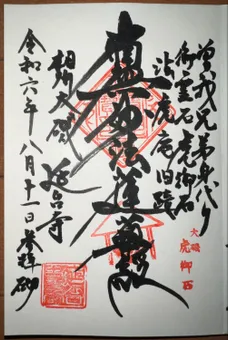 曽我兄弟身代り
御霊石虎御石
法虎庵旧跡
大磯
虎御石
南無妙法蓮華経
相州大磯
延台寺
令和六年八月十一日参拝